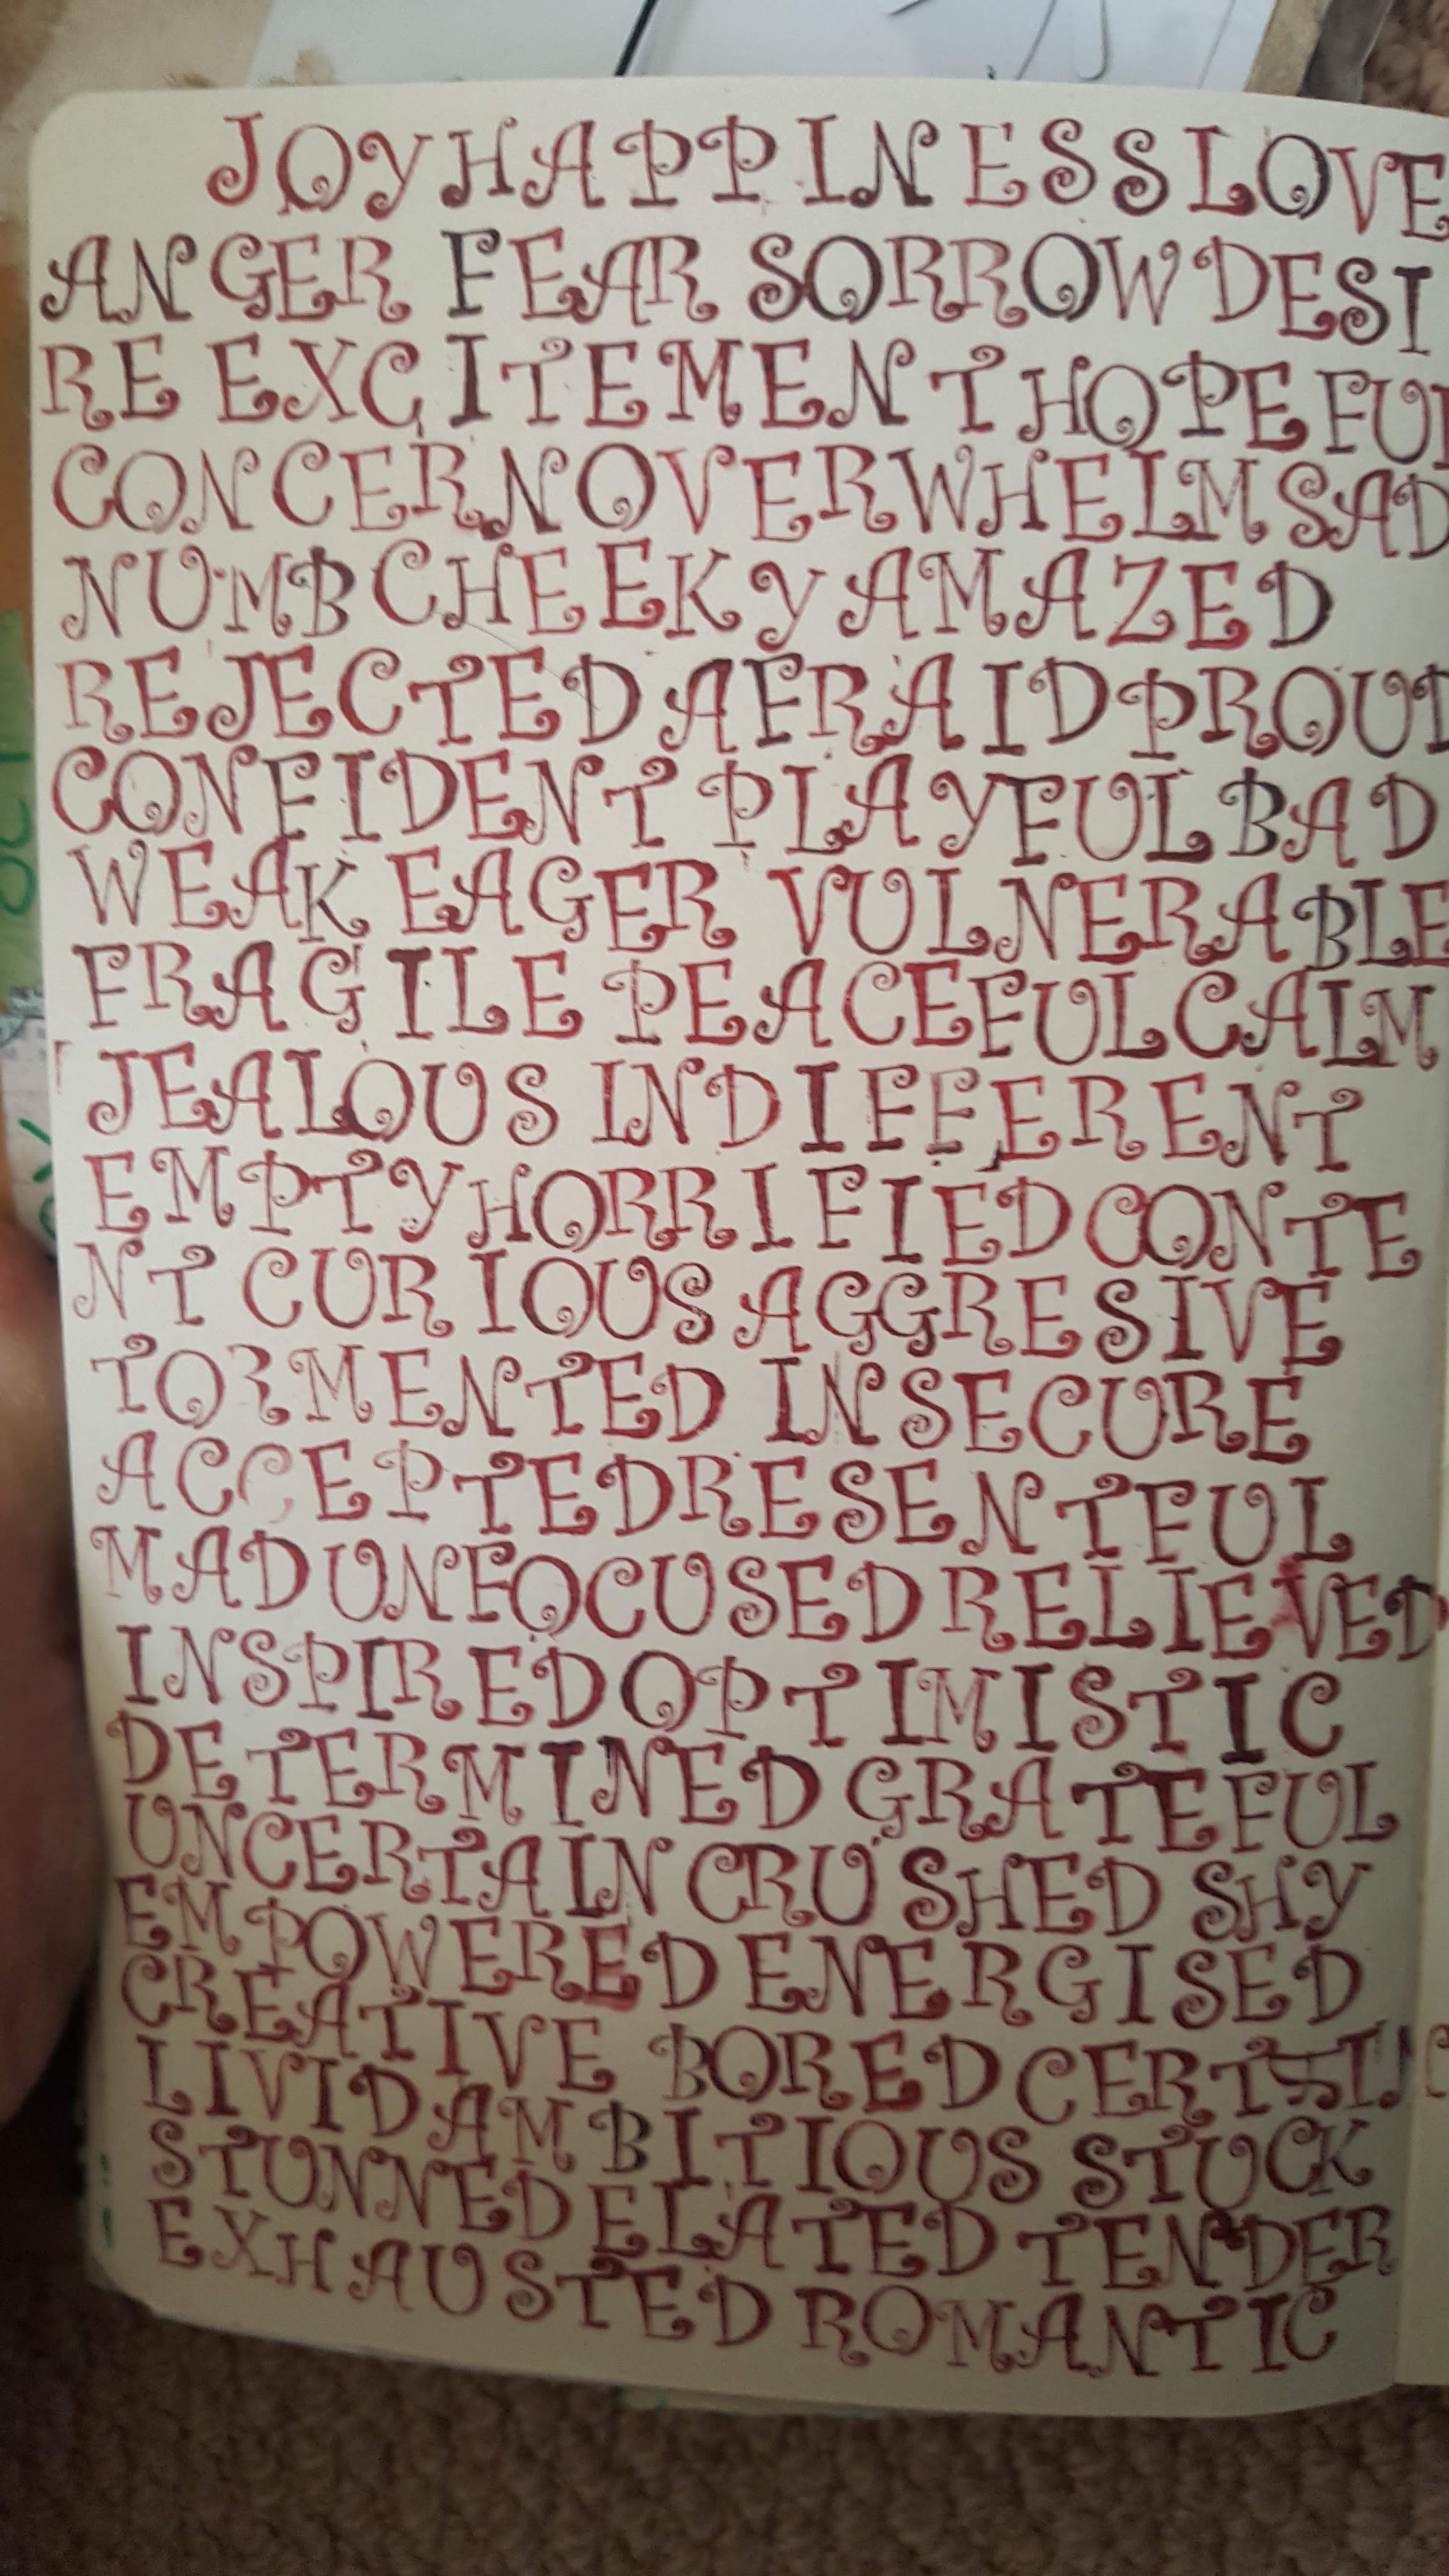 JOY HAPPINESS LOVE
ANGER FEAR SORROW DESI
RE EXCITEMENT HOPEFUL
CONCERN OVERWHELM SAD
NUMB CHEEKY AMAZED
REJECTED AFRAID PROUD
CONFIDENT PLAYFUL BAD
WEAK EAGER VULNERABLE
FRAGILE PEACEFUL CALM
JEALOUS INDIFFERENT
EMPTY HORRIFIED CONTE
NT CURIOUS AGGRESIVE
TORMENTED INSECURE
ACCEPTED RESENTFUL
MAD UNFOCUSED RELIEVED
INSPIRED OPTIMISTIC
DETERMINED GRATEFUL
UNCERTAIN CRUSHED SHY
EMPOWERED ENERGISED
CREATIVE BORED
LIVID AMBITIOUS STUCK
STUNNED ELATED TENDER
EXHAUSTED ROMANTIC